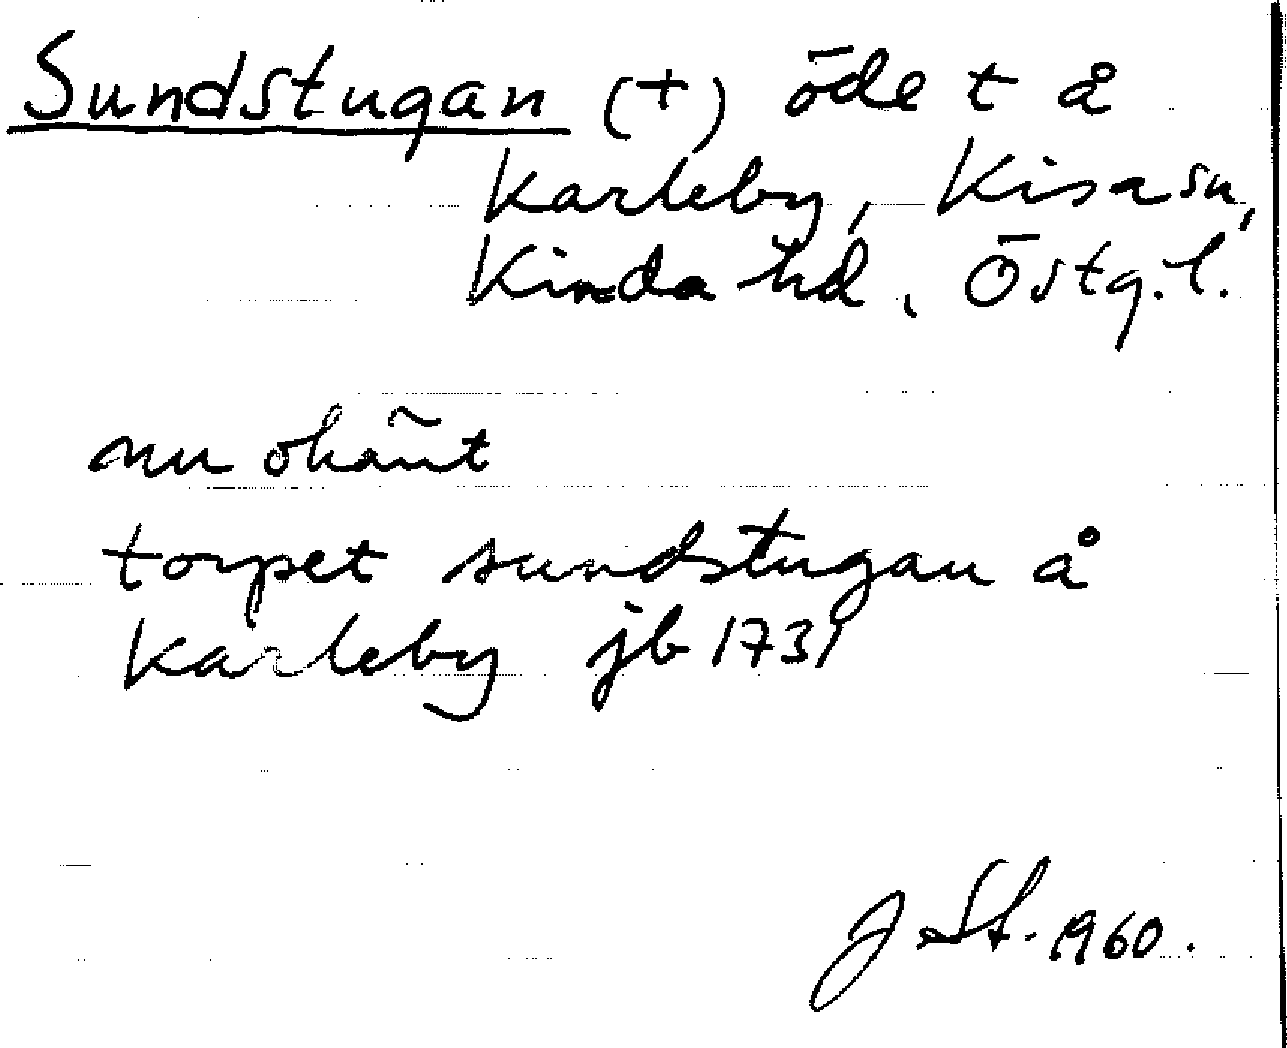 Sundstugan (+) öde t å
Karleby, Kisa sn,
Kinda hd, Östg. l.
nu okänt
torpet sundstugan å
Karleby jb 1731
J. St. 1960.